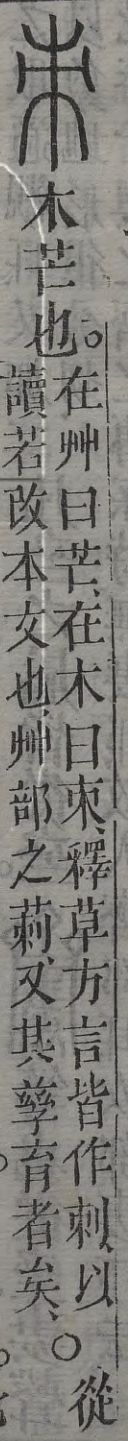 朿木芒也。
在艸曰芒、在木曰朿、釋草方言皆作刺、以
讀若改本文也、艸部之莿、又其孳育者矣、
〇從